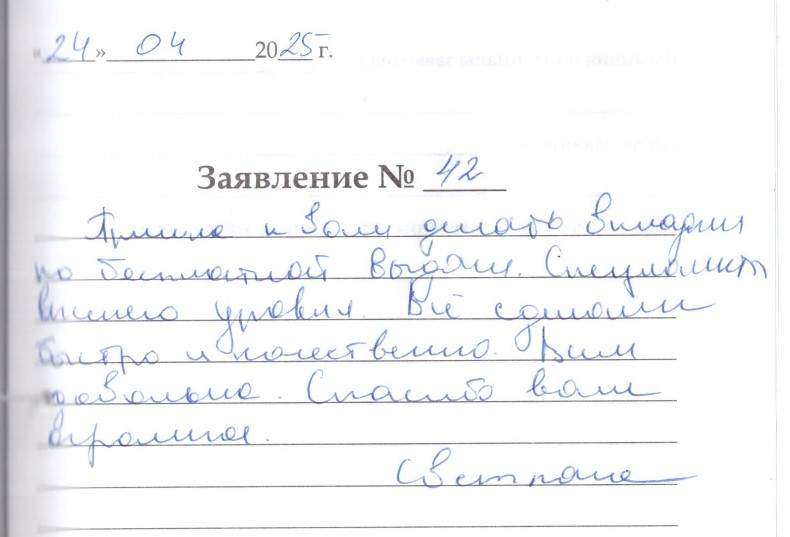 «24» 04 2025 г.
Заявление № 42
Пришла к Вам делать вкладыш
по бесплатной выдачи. Специалисты
высшего уровня. Всё сделали
быстро и качественно. Вам
довольна. Спасибо вам
огромное.
Светлана